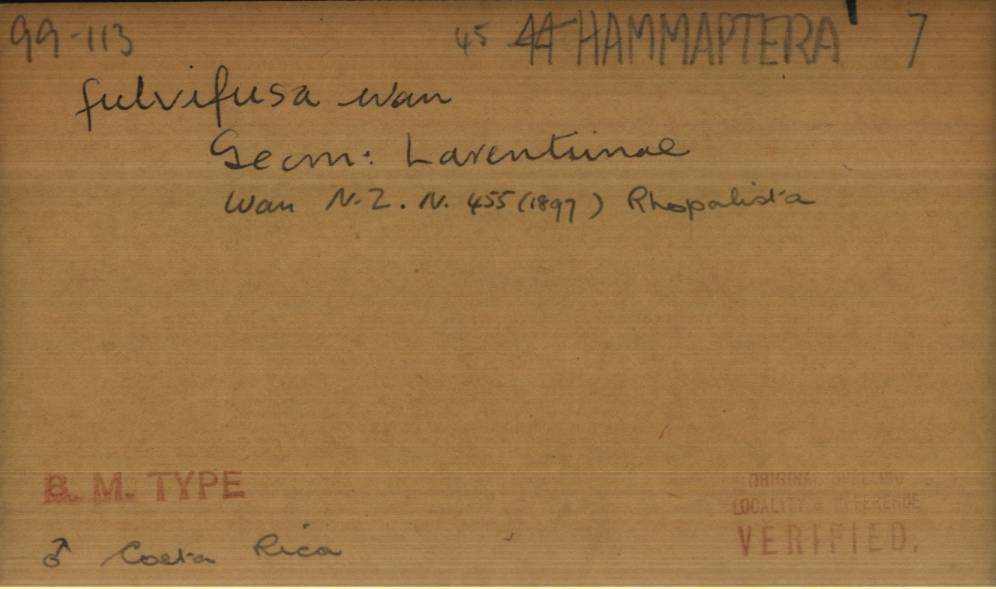 99-113 45 44 HAMMAPTERA 7
fulvifusa Wan
Geom: Larentiinae
Wan N.Z. N. 455 (1897) Rhopalista
B. M. TYPE
ORIGINAL SPELLING
LOCALITY & REFERENCE
VERIFIED.
♂ Costa Rica